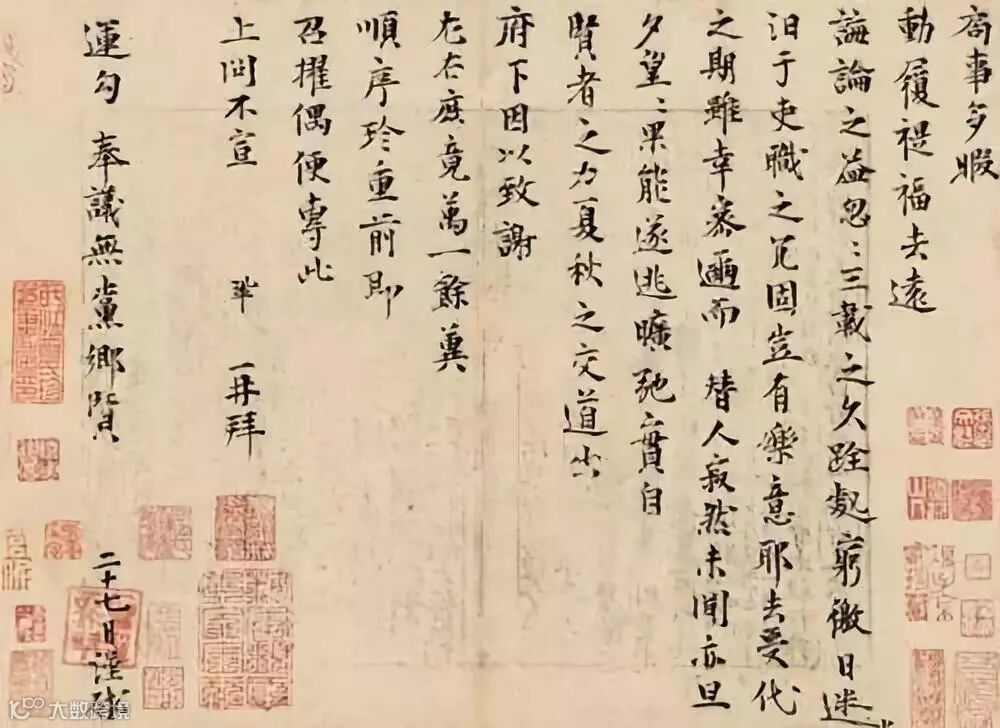 局事多暇
動履禔福去遠
誨論之益忽〻三載之久跧處窮徼日迷
汩于吏職之冗固豈有樂意耶去受代
之期雖幸密邇而 替人寂然未聞亦旦
夕望〻果能遂逃曠弛實自
賢者之力夏秋之交道出
府下因以致謝
左右庶竟萬一餘冀
順序珍重前即
召擢偶便專此
上問不宣 鞏 再拜
運勾 奉議無黨鄉賢 二十七日謹啟
大数跨境